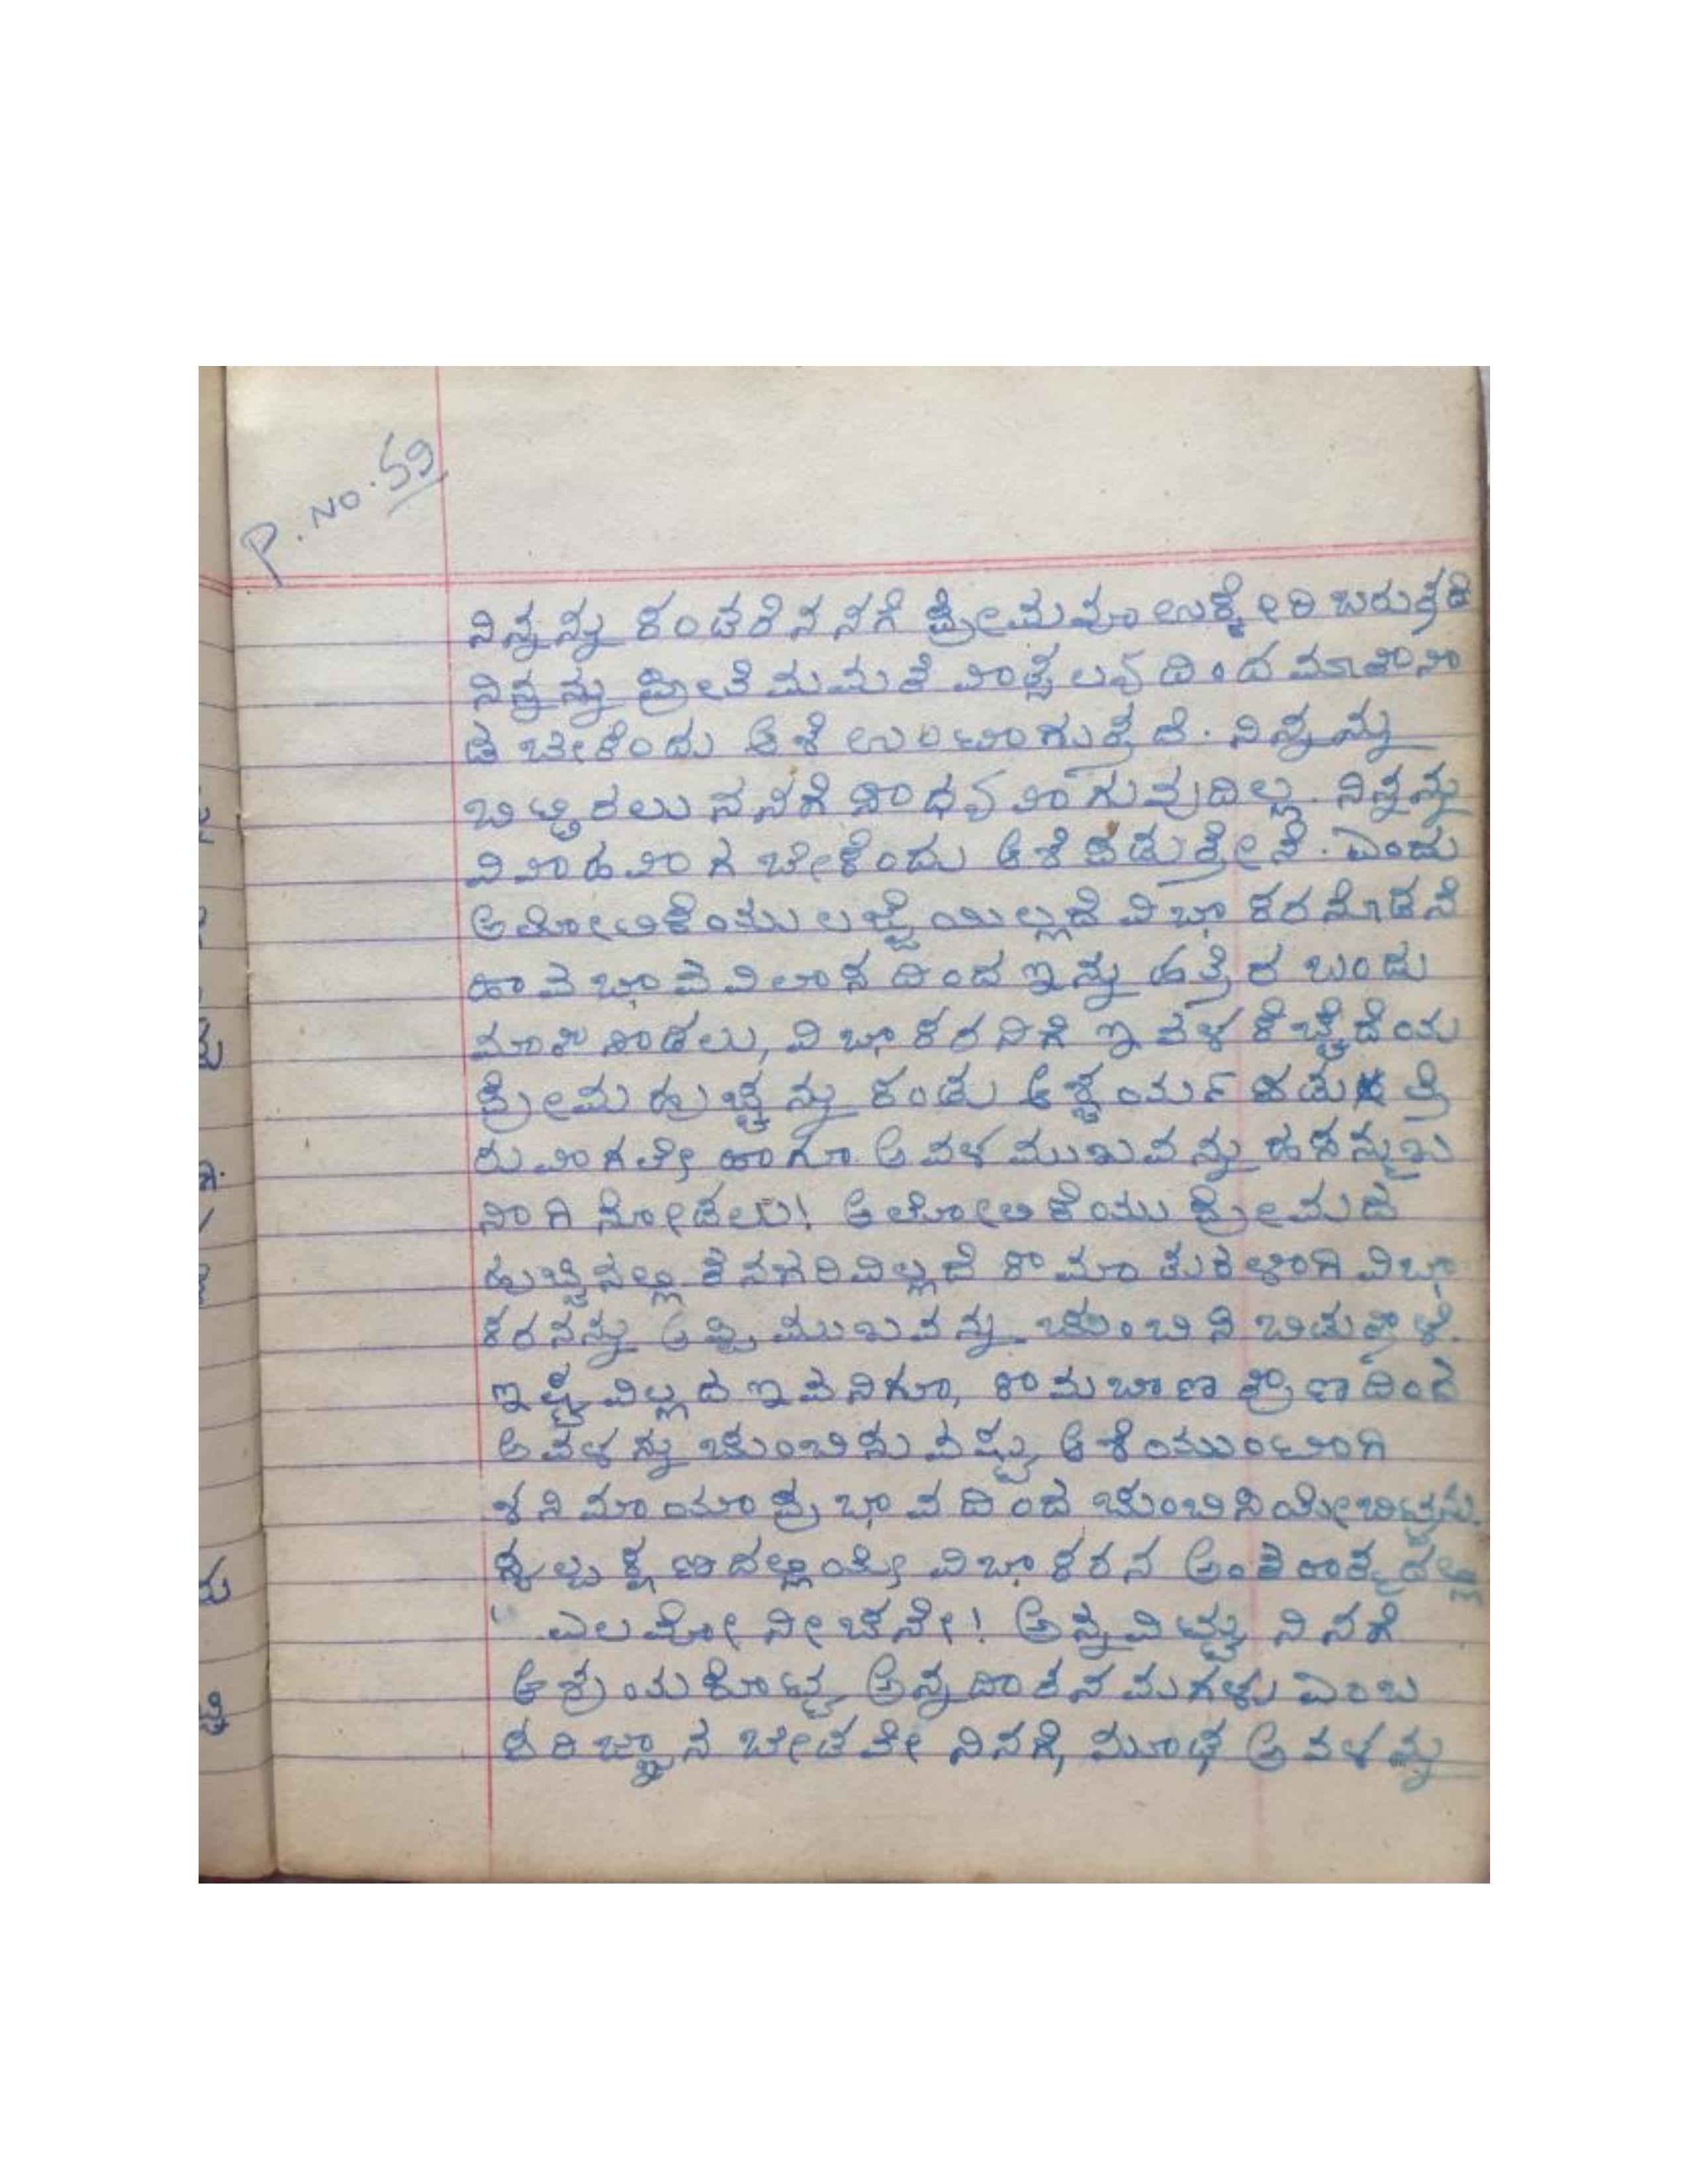 P. No. 59
ನಿನ್ನನ್ನು ಕಂಡರೆ ನನಗೆ ಪ್ರೇಮವೂ ಉಕ್ಕೇರಿ ಬರುತ್ತದೆ
ನಿನ್ನನ್ನು ಪ್ರೀತಿ ಮಮತೆ ವಾತ್ಸಲ್ಯದಿಂದ ಮಾತನಾ
ಡ ಬೇಕೆಂದು ಆಶೆ ಉಂಟಾಗುತ್ತದೆ. ನಿನ್ನನ್ನು
ಬಿಟ್ಟಿರಲು ನನಗೆ ಸಾಧ್ಯವಾಗುವುದಿಲ್ಲ. ನಿನ್ನನ್ನು
ವಿವಾಹವಾಗ ಬೇಕೆಂದು ಆಶೆ ಪಡುತ್ತೇನೆ. ಎಂದು
ಆಲೋಲಿಕೆಯು ಲಜ್ಜೆಯಿಲ್ಲದೆ ವಿಭಾಕರನೊಡನೆ
ಹಾವ ಭಾವ ವಿಲಾಸದಿಂದ ಇನ್ನು ಹತ್ತಿರ ಬಂದು
ಮಾತನಾಡಲು, ವಿಭಾಕರನಿಗೆ ಇವಳ ಕೆಚ್ಚೆದೆಯ
ಪ್ರೇಮ ಹುಚ್ಚನ್ನು ಕಂಡು ಆಶ್ಚರ್ಯ ಪಡುತ್ತಿ
ರುವಾಗಲೇ ಹಾಗೂ ಅವಳ ಮುಖವನ್ನು ಹಸನ್ಮುಖ
ನಾಗಿ ನೋಡಲು! ಆಲೋಲಿಕೆಯು ಪ್ರೇಮದ
ಹುಚ್ಚಿನಲ್ಲಿ ತನಗರಿವಿಲ್ಲದೆ ಕಾಮಾತುರಳಾಗಿ ವಿಭಾ
ಕರನನ್ನು ಅಪ್ಪಿ ಮುಖವನ್ನು ಚುಂಬಿಸಿ ಬಿಡುತ್ತಾಳೆ.
ಇಷ್ಟವಿಲ್ಲದ ಇವನಿಗೂ, ಕಾಮಬಾಣ ಪ್ರಾಣದಿಂದ
ಅವಳನ್ನು ಚುಂಬಿಸುವಷ್ಟು ಆಶೆಯುಂಟಾಗಿ
ಶನಿ ಮಾಯಾ ಪ್ರಭಾವದಿಂದ ಚುಂಬಿಸಿಯೇ ಬಿಟ್ಟನು.
ಸ್ವಲ್ಪ ಕ್ಷಣದಲ್ಲಿಯೇ ವಿಭಾಕರನ ಅಂತರಾತ್ಮದಲ್ಲಿ
" ಎಲವೋ ನೀಚನೇ! ಅನ್ನವಿಟ್ಟು ನಿನಗೆ
ಆಶ್ರಯಕೊಟ್ಟ ಅನ್ನದಾತನ ಮಗಳು ಎಂಬ
ಪರಿಜ್ಞಾನ ಬೇಡವೇ ನಿನಗೆ, ಮೂಢ ಅವಳನ್ನು